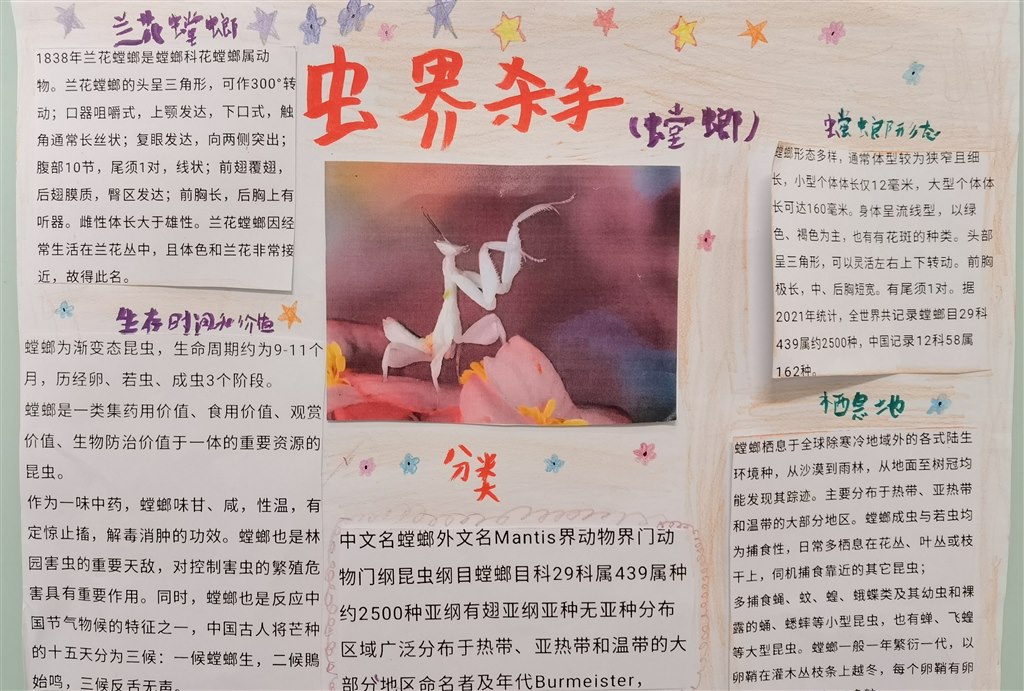 虫界杀手
(螳螂)
兰花螳螂
1838年兰花螳螂是螳螂科花螳螂属动
物。兰花螳螂的头呈三角形，可作300°转
动；口器咀嚼式，上颚发达，下口式，触
角通常长丝状；复眼发达，向两侧突出；
腹部10节，尾须1对，线状；前翅覆翅，
后翅膜质，臀区发达；前胸长，后胸上有
听器。雌性体长大于雄性。兰花螳螂因经
常生活在兰花丛中，且体色和兰花非常接
近，故得此名。
生存时间和价值
螳螂为渐变态昆虫，生命周期约为9-11个
月，历经卵、若虫、成虫3个阶段。
螳螂是一类集药用价值、食用价值、观赏
价值、生物防治价值于一体的重要资源的
昆虫。
作为一味中药，螳螂味甘、咸，性温，有
定惊止搐，解毒消肿的功效。螳螂也是林
园害虫的重要天敌，对控制害虫的繁殖危
害具有重要作用。同时，螳螂也是反应中
国节气物候的特征之一，中国古人将芒种
的十五天分为三候：一候螳螂生，二候鵙
始鸣，三候反舌无声。
分类
中文名螳螂外文名Mantis界动物界门动
物门纲昆虫纲目螳螂目科29科属439属种
约2500种亚纲有翅亚纲亚种无亚种分布
区域广泛分布于热带、亚热带和温带的大
部分地区命名者及年代Burmeister，
螳螂形态
螳螂形态多样，通常体型较为狭窄且细
长，小型个体体长仅12毫米，大型个体体
长可达160毫米。身体呈流线型，以绿
色、褐色为主，也有有花斑的种类。头部
呈三角形，可以灵活左右上下转动。前胸
极长，中、后胸短宽。有尾须1对。据
2021年统计，全世界共记录螳螂目29科
439属约2500种，中国记录12科58属
162种。
栖息地
螳螂栖息于全球除寒冷地域外的各式陆生
环境种，从沙漠到雨林，从地面至树冠均
能发现其踪迹。主要分布于热带、亚热带
和温带的大部分地区。螳螂成虫与若虫均
为捕食性，日常多栖息在花丛、叶丛或枝
干上，伺机捕食靠近的其它昆虫；
多捕食蝇、蚊、蝗、蛾蝶类及其幼虫和裸
露的蛹、蟋蟀等小型昆虫，也有蝉、飞蝗
等大型昆虫。螳螂一般一年繁衍一代，以
卵鞘在灌木丛枝条上越冬，每个卵鞘有卵